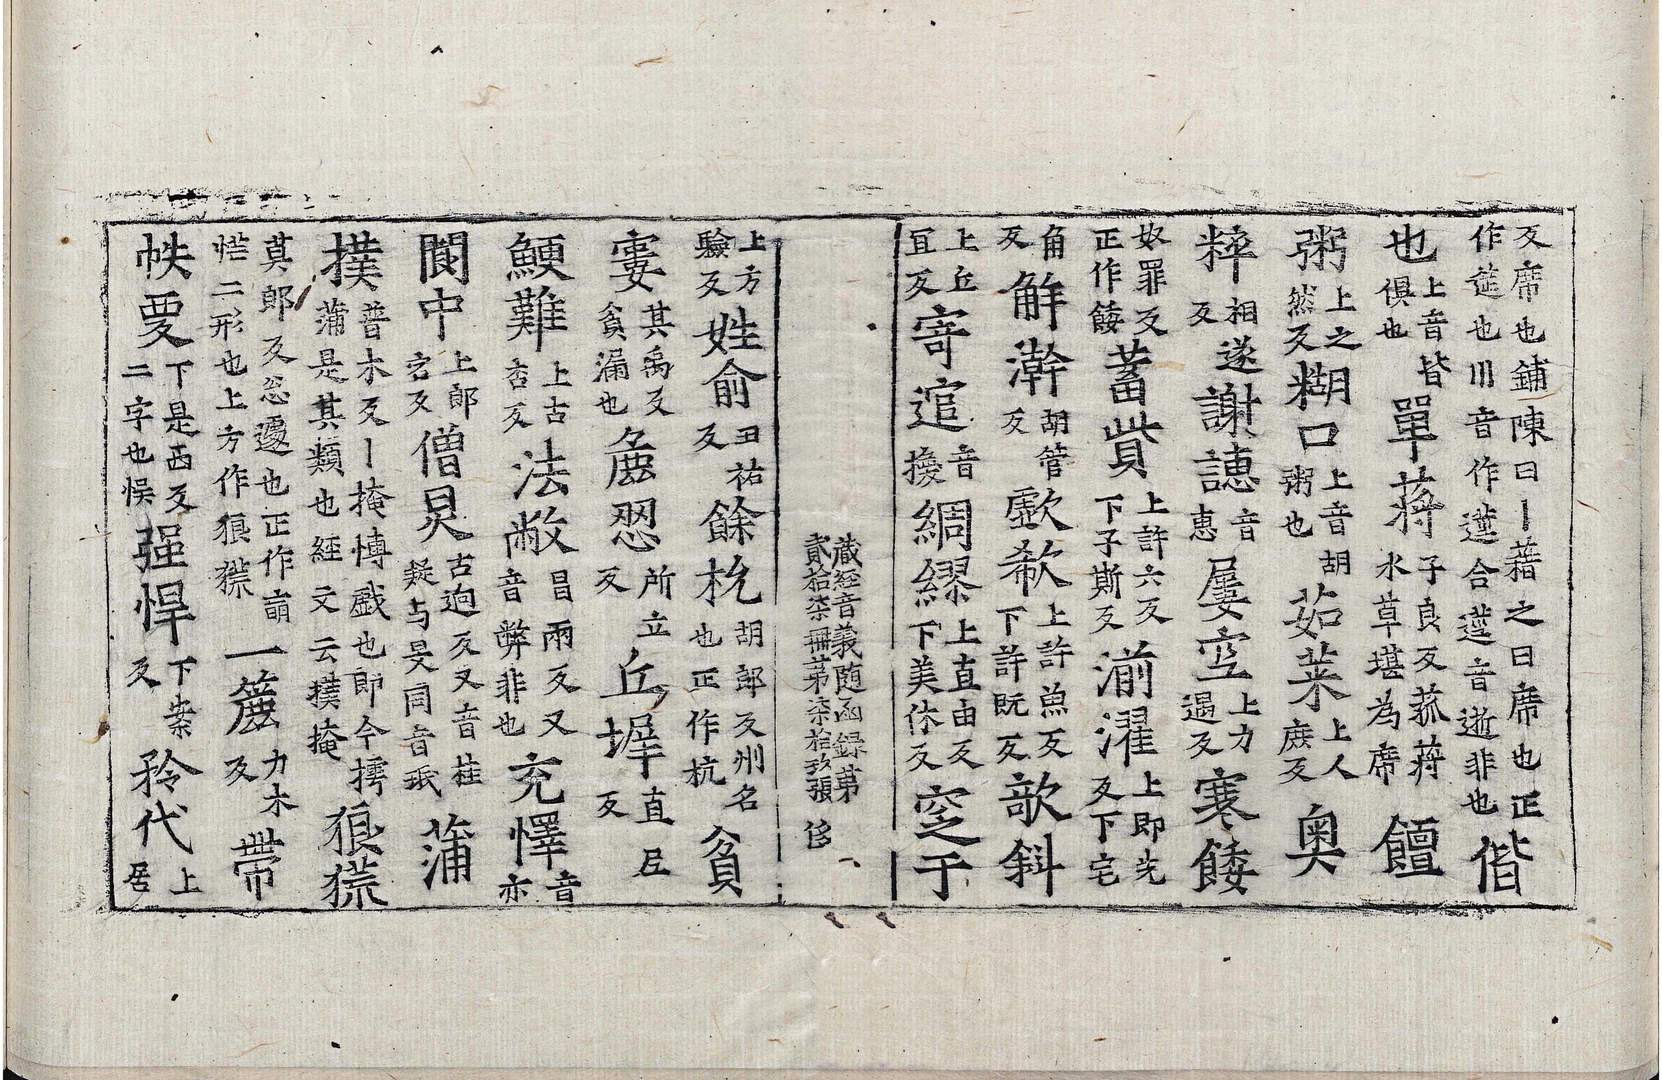 反席也鋪陳曰丨藉之曰席也正作莚也川音作䕥合䕥音逝非也偕
也上音皆俱也單蔣子良反菰蔣水草堪為席饘
粥上之然反糊口上音胡粥也茹菜上人庶反奥
粹相遂反謝譓音惠屢空上力遇反寒餧
奴罪反正作餧蓄貲上許六反下子斯反湔濯上即先反下宅
角反解澣胡管反歔欷上許魚反下許既反歃斜
上丘冝反寄逭音換綢繆上直由反下美休反窆于
藏經音義隨函録第貳拾柒冊第柒拾玖張 侈
上方驗反姓俞丑祐反餘杭胡郎反州名也正作杭貧
寠其禹反貧漏也麁忍所立反丘墀直𡰱反
鯁難上古杏反法敞昌兩反又音弊非也充懌音亦
閬中上郎宕反僧炅古迥反又音桂疑与旻同音珉蒲
撲普木反丨掩博戲也即今摴蒲是其類也經文云撲掩狼㡃
莫郎反忩遽也正作𦕈恾二形也上方作狼㡃一簏力木反帶
帙覄下是西反二字也悮强悍下案反矜代上居